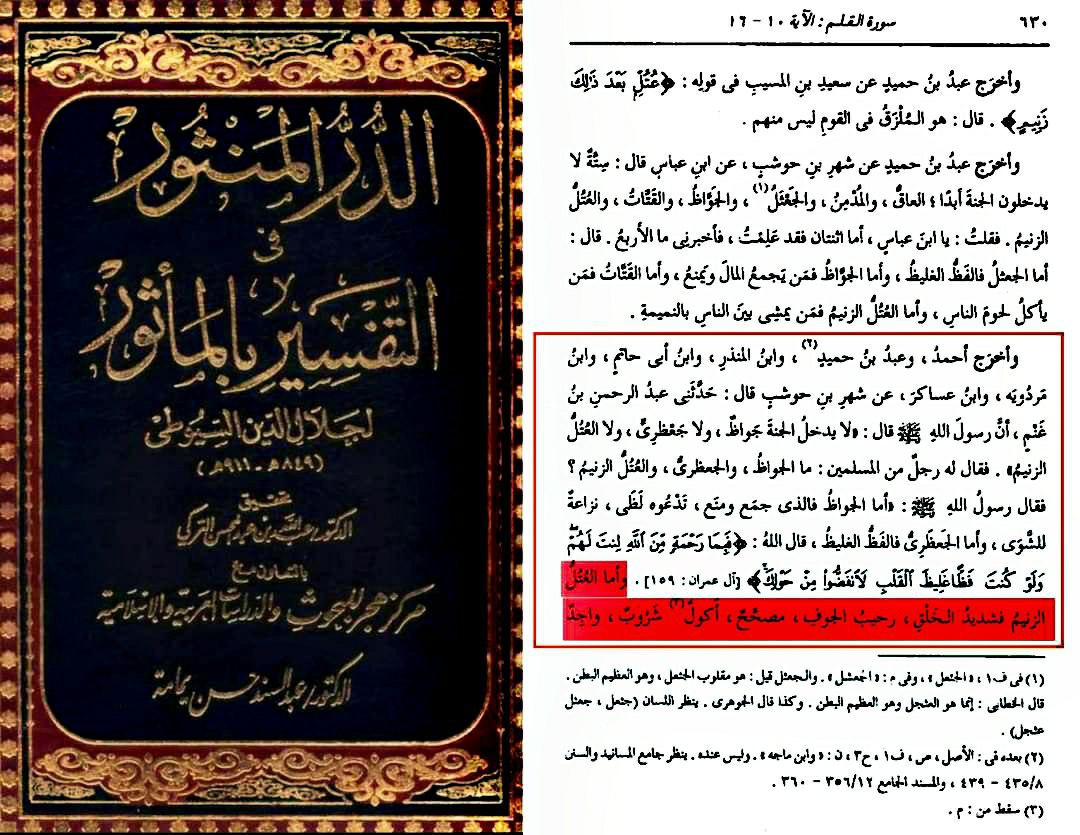 الدُّرُّ المَنْثور
في
التَّفْسِيرِ بالمأثور
لجلال الدين السيوطى
(٨٤٩هـ - ٩١١هـ)
تحقيق
الدكتور عبد الله بن عبد المحسن التركي
بالتعاون مع
مركز هجر للبحوث والدراسات العربية والإسلامية
الدكتور عبد السند حسن يمامة
سورة القلم : الآية ١٠ - ١٦
٦٣٠
وأخرَج عبدُ بنُ حميدٍ عن سعيدِ بنِ المسيبِ فى قولِه : ﴿عُتُلٍّ بَعْدَ ذَٰلِكَ
زَنِيمٍ﴾ . قال : هو المُلْزَقُ فى القومِ ليس منهم .
وأخرَج عبدُ بنُ حميدٍ عن شهرِ بنِ حوشبٍ ، عن ابنِ عباسٍ قال : ستَّةٌ لا
يدخلون الجنةَ أبدًا ؛ العاقُّ ، والمُدْمِنُ ، والجَعْثَلُ(١) ، والجَوَّاظُ ، والقَتَّاتُ ، والعُتُلُّ
الزنيمُ . فقلتُ : يا ابنَ عباسٍ ، أما اثنتان فقد عَلِمْتُ ، فأخبرنى ما الأربعُ . قال :
أما الجعثلُ فالفَظُّ الغليظُ ، وأما الجوَّاظُ فمَن يَجمعُ المالَ ويَمنَعُ ، وأما القَتَّاتُ فمَن
يأكلُ لحومَ الناسِ ، وأما العُتُلُّ الزنيمُ فمَن يمشِى بينَ الناسِ بالنميمةِ .
وأخرَج أحمدُ ، وعبدُ بنُ حميدٍ(٢) ، وابنُ المنذرِ ، وابنُ أبى حاتمٍ ، وابنُ
مَردُويَه ، وابنُ عساكرَ ، عن شهرِ بنِ حوشبٍ قال : حَدَّثَنى عبدُ الرحمنِ بنُ
غَنْمٍ ، أنَّ رسولَ اللهِ ﷺ قال : «لا يدخلُ الجنةَ جَواظٌ ، ولا جَعْظرِىٌّ ، ولا العُتُلُّ
الزنيمُ» . فقال له رجلٌ من المسلمين : ما الجواظُ ، والجعظرىُّ ، والعُتُلُّ الزنيمُ ؟
فقال رسولُ اللهِ ﷺ : «أما الجواظُ فالذى جمَع ومنَع ، تَدْعُوه لَظَى ، نزاعةٌ
للشَّوَى ، وأما الجَعظَرِىُّ فالفَظُّ الغليظُ ، قال اللهُ : ﴿فَبِمَا رَحْمَةٍ مِّنَ ٱللَّهِ لِنتَ لَهُمْ
وَلَوْ كُنتَ فَظًّا غَلِيظَ ٱلْقَلْبِ لَٱنفَضُّوا۟ مِنْ حَوْلِكَ﴾ [آل عمران : ١٥٩] . وأما العُتُلُّ
الزنيمُ فشديدُ الخَلْقِ ، رحيبُ الجوفِ ، مصحَّحٌ ، أكولٌ(٣) شَرُوبٌ ، واجِدٌ
(١) فى ف١ : «الجثعل» ، وفى م : «الجعشل» . والجعثل قيل : هو مقلوب الجثعل ، وهو العظيم البطن .
قال الخطابى : إنما هو العثجل وهو العظيم البطن . وكذا قال الجوهرى . ينظر اللسان (جثعل ، جعثل
عثجل) .
(٢) بعده فى : الأصل ، ص ، ف١ ، ح٣ ، ن : «وابن ماجه» . وليس عنده . ينظر جامع المسانيد والسنن
٤٣٥/٨ - ٤٣٩ ، والمسند الجامع ٣٥٦/١٢ - ٣٦٠ .
(٣) سقط من : م .